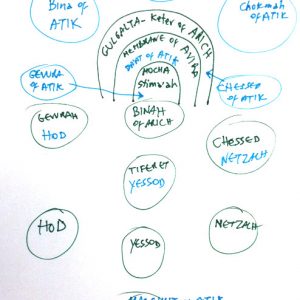 Bina of
ATIK
Chokmah
of ATIK
GULGALTA - Keter of ARICH
MEMBRANE OF AVIRA
DAAT OF ATIK
MOCHA
Stima'ah
GEVURA
OF ATIK
CHESSED
OF ATIK
BINAH
OF ARICH
GEVURAH
HOD
CHESSED
NETZACH
TIFERET
YESSOD
HOD
YESSOD
NETZACH